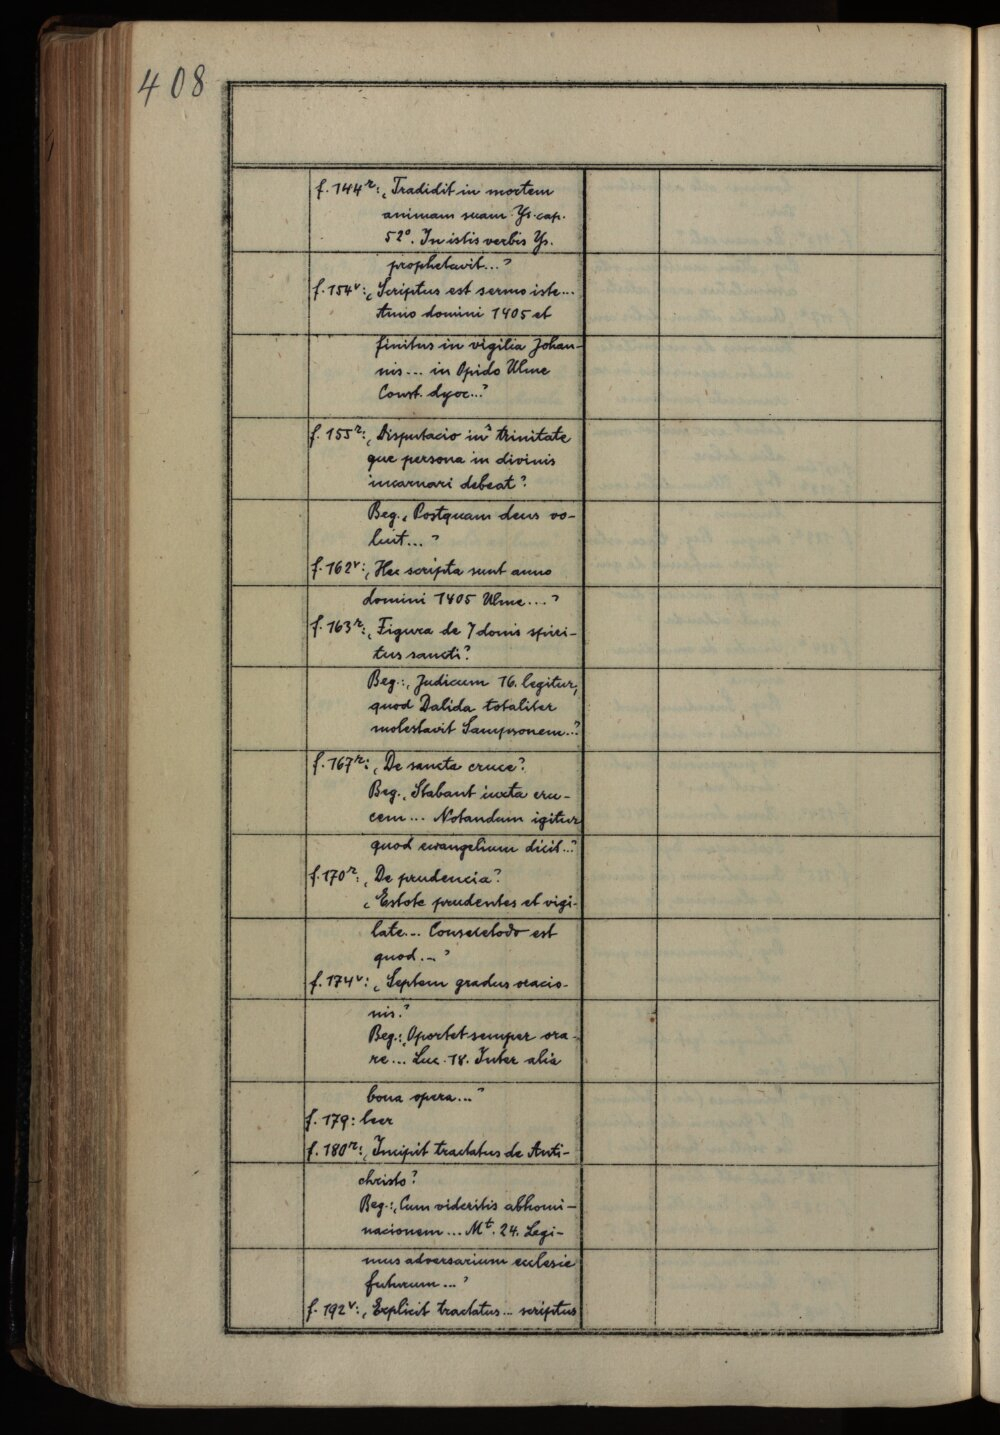 408
f. 144r: „Tradidit in mortem
animam suam. Ys. cap.
52º. In istis verbis Ys.
prophetavit..."
f. 154v: „Scriptus est sermo iste...
Anno domini 1405 et
finitus in vigilia Johan-
nis... in Opido Ulme
Const. dyoc..."
f. 155r: „Disputacio in trinitate
que persona in divinis
incarnari debeat"
Beg. „Postquam deus vo-
luit..."
f. 162v: „Hec scripta sunt anno
domini 1405 Ulme..."
f. 163r: „Figura de 7 donis spiri-
tus sancti"
Beg.: „Judicum 16. legitur,
quod Dalida totaliter
molestavit Sampsonem..."
f. 167r: „De sancta cruce"
Beg. „Stabant iuxta cru-
cem... Notandum igitur
quod ewangelium dicit..."
f. 170r: „De prudencia"
„Estote prudentes et vigi-
late... est
quod..."
f. 174v: „Septem gradus oracio-
nis."
Beg.: „Oportet semper ora-
re... Luc. 18. Inter alia
bona opera..."
f. 179: leer
f. 180r: „Incipit tractatus de Anti-
christo"
Beg.: „Cum videritis abhomi-
nacionem... Mt. 24. Legi-
mus adversarium ecclesie
futurum..."
f. 192v: „Explicit tractatus... scriptus